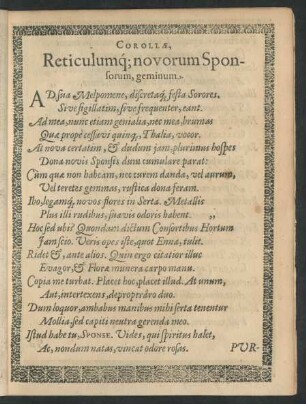 COROLLÆ,
Reticulumq́; novorum Spon-
sorum, geminum.
AD sua Melpomene, discretaq́, festa Sorores.
Sive sigillatim, sive frequenter, eant.
Ad mea, nunc etiam genialia, nec mea brumas
Quæ prope cessavi quinq, Thalia, vocor.
At nova certatim, & dudum jam, plurimus hospes
Dona novis Sponsis dum cumulare parat:
Cùm quæ non habeam, nec virem danda, vel aurum,
Vel teretes gemmas, rustica dona feram.
Ibo, legamq́, novos flores in Serta. Metallis
Plus illi rudibus, suavis odoris habent. ,,
Hoc sed ubi? Quondam dictum Consortibus Hortum
Jam scio. Veris opes iste, quot Enna, tulit.
Ridet &, ante alios. Quin ergo citatior illuc
Evagor, & Floræ munera carpo manu.
Copia me turbat. Placet hoc, placet illud. At unum,
Aut, intertexens, depropero duo.
Dum loquor, ambabus manibus mihi serta tenentur
Mollia, sed capiti neutra gerenda meo.
Istud habe tu, SPONSE. Vides, qui spiritus halet,
Ac, nondum natas, vincat odore rosas.
PUR-